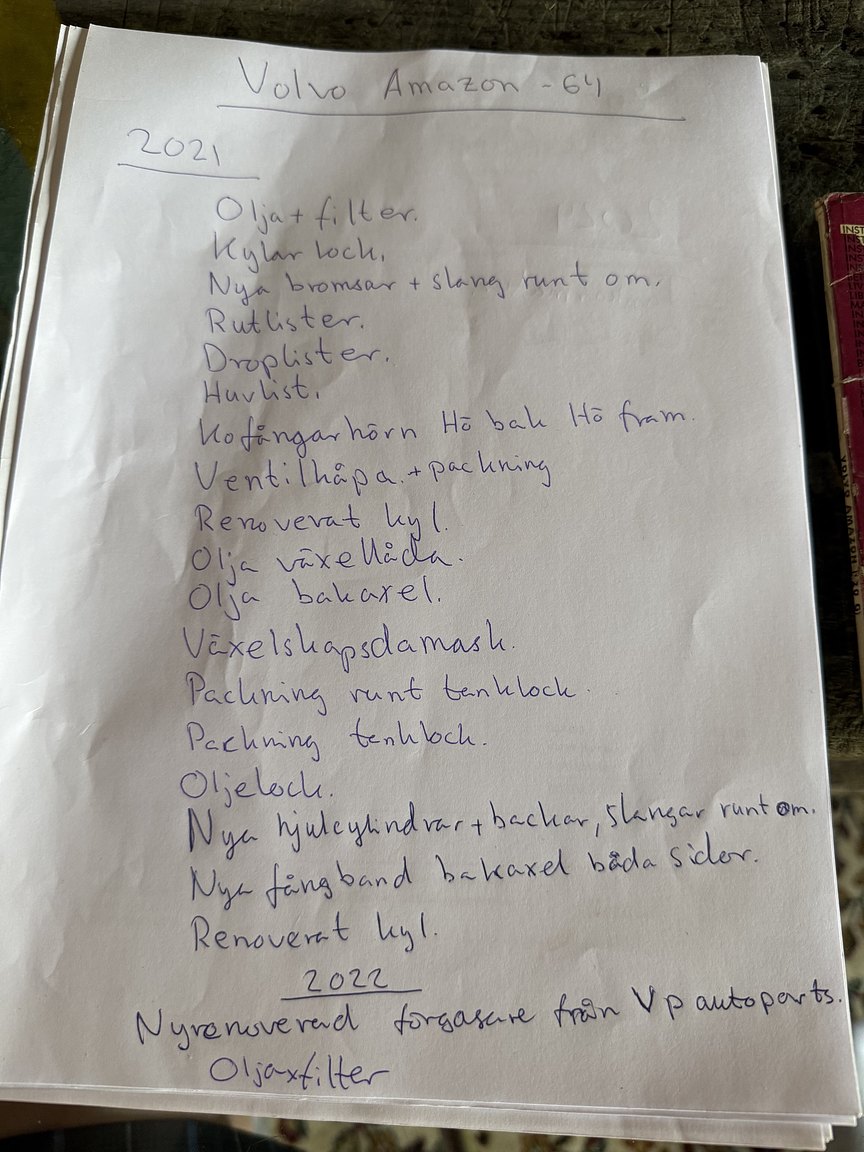 Volvo Amazon - 64
2021
Olja + filter.
Kylar lock.
Nya bromsar + slang runt om.
Rutlister.
Droplister.
Huvlist.
Kofångarhörn Hö bak Hö fram.
Ventilkåpa. + packning
Renoverat kyl.
Olja växellåda.
Olja bakaxel.
Växelskapsdamask.
Packning runt tanklock.
Packning tanklock.
Oljelock.
Nya hjulcylindrar + backar, slangar runt om.
Nya fångband bakaxel båda sidor.
Renoverat kyl.
2022
Nyrenoverad förgasare från Vp autoparts.
Olja x filter
INST